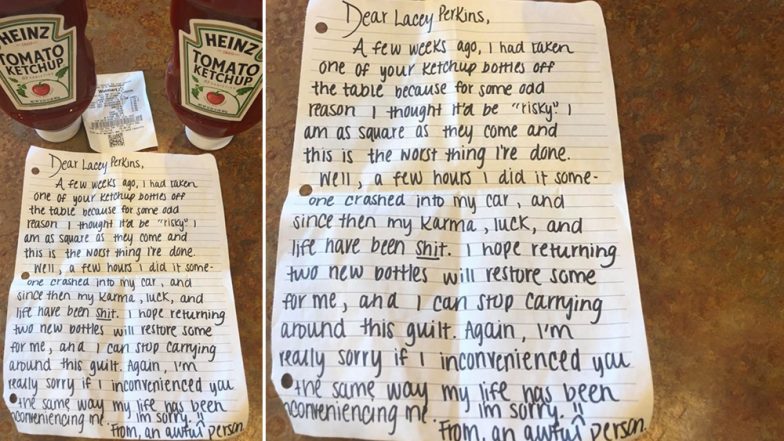 HEINZ
TOMATO
KETCHUP
Walmart
HEINZ
TOMATO
KETCHUP
Dear Lacey Perkins,
A few weeks ago, I had taken
one of your ketchup bottles off
the table because for some odd
reason I thought it'd be "risky" I
am as square as they come and
this is the worst thing I've done.
Well, a few hours I did it some-
one crashed into my car, and
since then my karma, luck, and
life have been shit. I hope returning
two new bottles will restore some
for me, and I can stop carrying
around this guilt. Again, I'm
really sorry if I inconvenienced you
the same way my life has been
inconveniencing me. I'm sorry. !!
From, an awful person.
Dear Lacey Perkins,
A few weeks ago, I had taken
one of your ketchup bottles off
the table because for some odd
reason I thought it'd be "risky" I
am as square as they come and
this is the worst thing I've done.
Well, a few hours I did it some-
one crashed into my car, and
since then my karma, luck, and
life have been shit. I hope returning
two new bottles will restore some
for me, and I can stop carrying
around this guilt. Again, I'm
really sorry if I inconvenienced you
the same way my life has been
inconveniencing me. I'm sorry. !!
From, an awful person.